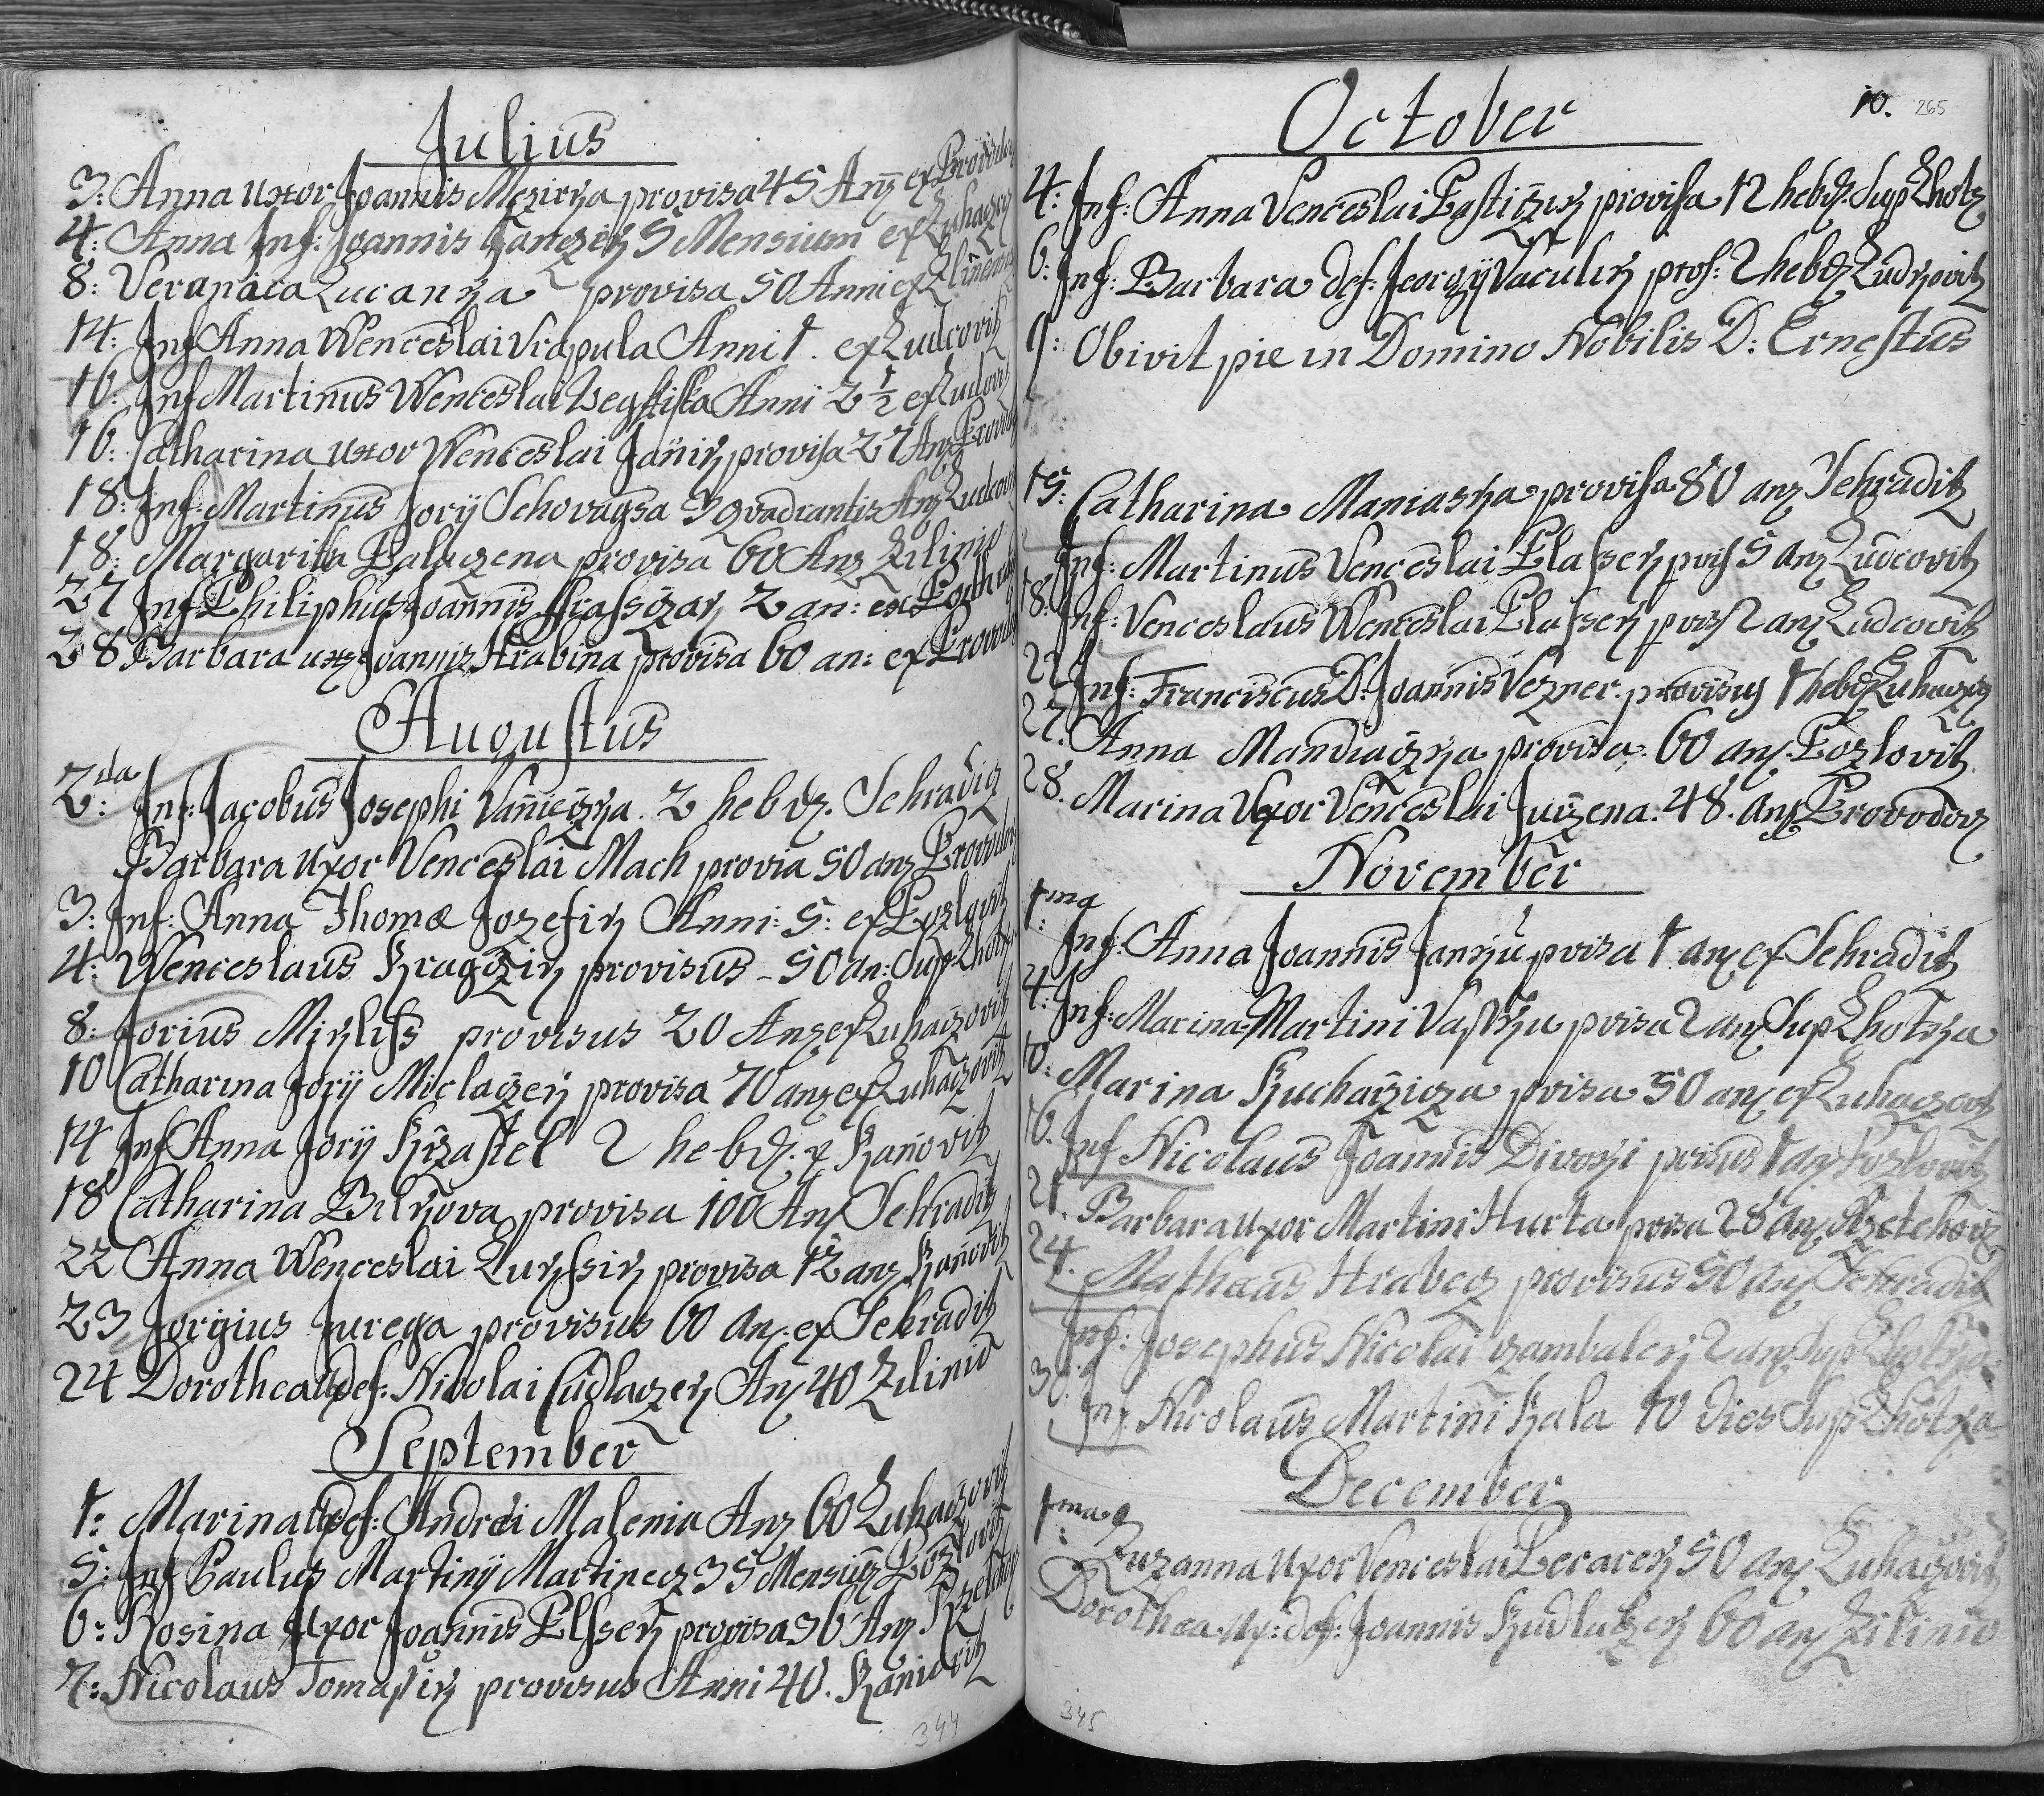 Julius
3: Anna uxor Joannis Mezirka provisa 45 Anz ex Provodov
4: Anna Inf: Joannis Janczik 5 Mensium ex Luhaczov
8: Veronica Lucanka provisa 50 Anni ex Zlinensi
14: Inf Anna Wenceslai Vrapula Anni 1. ex Ludcovitz
16: Inf Martinus Wenceslai Anni 2 1/2 ex Ludcov
16: Catharina uxor Wenceslai Janik provisa 27 Anz Provod
18: Inf: Martinus Jorÿ Schovagsa 3 quadrantis Anz Ludcov
18: Margarita Balaczena provisa 60 Anz Zilinio
27 Inf Philiphus Joannis 2 an: ex
28 Barbara ux Joannis Hrabina provisa 60 an: ex Provod
Augustus
2da: Inf: Jacobus Josephi Vaniczka. 2 hebd. Sehradiz
Barbara uxor Venceslai Mach provia 50 anz Provodov
3: Inf: Anna Thomæ Jozefik Anni: 5: ex Pozlovitz
4: Wenceslaus Kragczik provisus - 50 an: Sup: Lhotz
8: Jorius Mikliss provisus 20 Anz ex Luhaczovitz
10 Catharina Jorÿ Miclaczek provisa 70 anz ex Luhaczovitz
14 Inf Anna Jorÿ Krzastel 2 hebd. x Kanovitz
18 Catharina Bilkova provisa 100 Anz Sehraditz
22 Anna Wenceslai Lukssik provisa 12 anz Kanovitz
23 Jorgius Jurega provisus 60 an. ex Sehraditz
24 Dorothea ux def: Nicolai Cudlaczek Anz 40 Zilinio
September
1: Marina ux def: Andrei Malenia Anz 60 Luhaczovitz
5: Inf Paulus Martinÿ Martinecz 35 Mensium Pozlovitz
6: Rosina Uxor Joannis Elssek provisa 36 Anz Rzetechov
7: Nicolaus Tomassik provisus Anni 40. Kaniovitz
344
10. 265
October
4: Inf: Anna Venceslai Bastizik provisa 12 hebd. Sup Lhotz
6: Inf: Barbara def: Georgÿ Vaculik prof: 2 hebd Ludkovitz
9: Obivit pie in Domino Nobilis D: Ernestus
15: Catharina Maniaska provisa 80 anz Sehraditz
Inf: Martinus Venceslai Elassek pvis 5 anz Ludcovitz
18: Inf: Venceslaus Wenceslai Elassek pvis 2 anz Ludcovitz
22 Inf: Franciscus D: Joannis Vezner. provisus 1 hebd Luhaczov
27. Anna Mandiaczka provisa: 60 anz. Pozlovitz
28. Marina Uxor Venceslai Jurzena: 48. anz Provodov
November
1ma: Inf: Anna Joannis Janku pvisa 1 anz ex Sehraditz
4: Inf: Marina Martini Vasku pvisa 2 anz Sup Lhotka
10: Marina Kucharzicza pvisa 50 anz ex Luhaczovitz
16. Inf Nicolaus Joannis Divoki pvisus 1 anz Pozlovitz
21. Barbara uxor Martini Hurta pvisa 28 anz Rzetechovitz
24. Mathæus Hrabecz provisus 50 anz Sehraditz
Inf: Josephus Nicolai Czambalek 2 anz Sup Lhotka
30: Inf. Nicolaus Martini Kala 10 Dies Sup Lhotka
December
1ma: Zuzanna uxor Venceslai Becacek 50 anz Luhaczovitz
Dorothea Ux: def: Joannis Kudlaczek 60 anz Zilinio
345